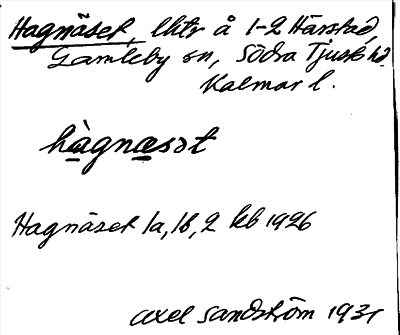 Hagnäset, lhtr å 1-2 Hårstad,
Gamleby sn, Södra Tjust hd
Kalmar l.
hàgnæsət
Hagnäset 1a, 1b, 2 kb 1926
Axel Sandström 1931